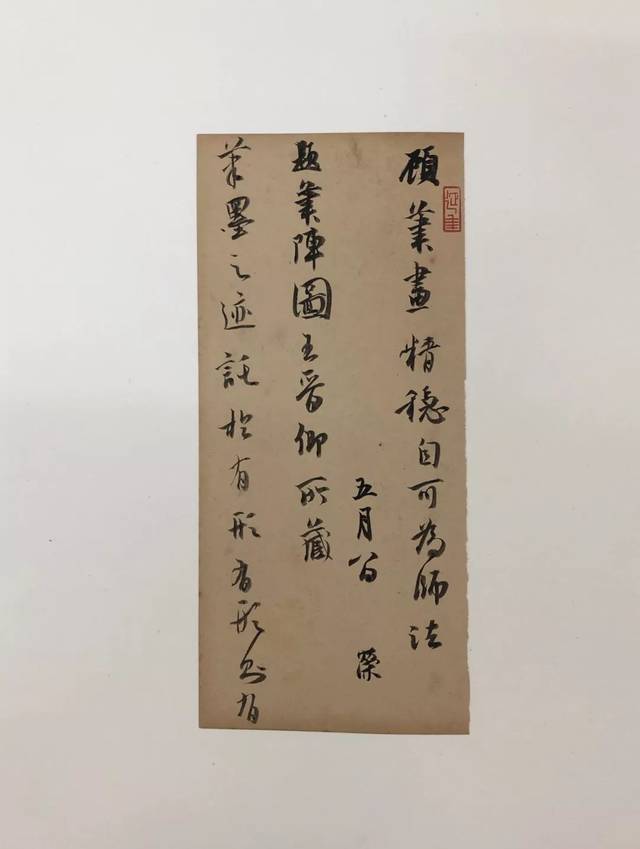 顧筆畫精穩自可為師法
五月八日 榮
題筆陣圖王晉卿所藏
筆墨之迹託於有形有形則有